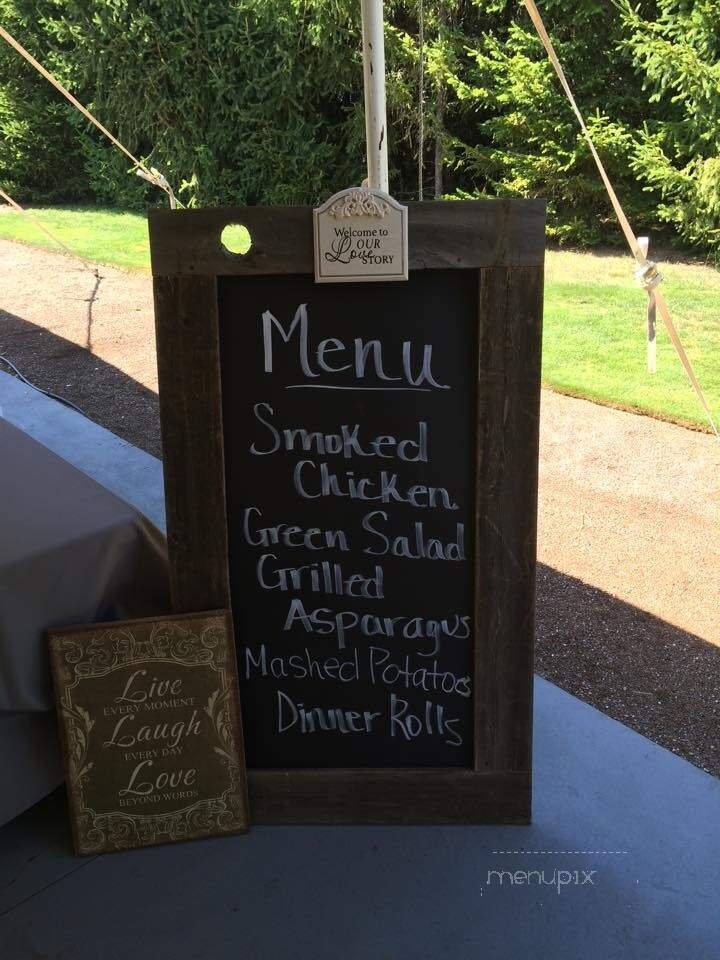 Welcome to
OUR
Love STORY
Menu
Smoked
Chicken
Green Salad
Grilled
Asparagus
Mashed Potatoes
Dinner Rolls
Live
EVERY MOMENT
Laugh
EVERY DAY
Love
BEYOND WORDS
menupix